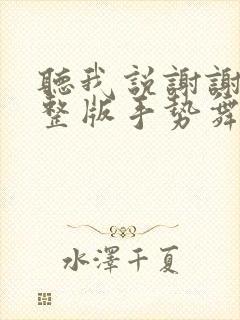 聽我説謝謝
整版手勢舞
水澤千夏